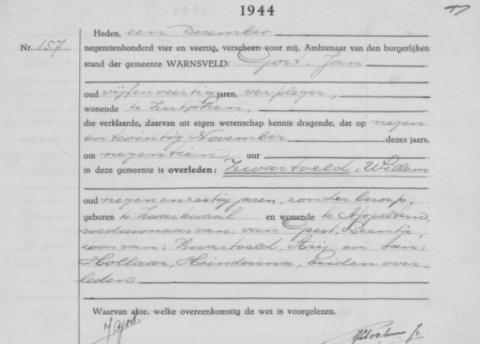 1944
Heden, een December
Nr. 157 negentienhonderd vier en veertig, verscheen voor mij, Ambtenaar van den burgerlijken
stand der gemeente WARNSVELD: Goot, Jan
oud vijfenveertig jaren, verpleger,
wonende te Zutphen,
die verklaarde, daarvan uit eigen wetenschap kennis dragende, dat op negen
entwintig November dezes jaars,
om negentien uur
in deze gemeente is overleden: Zwartveld, Willem
oud negenenzestig jaren, zonder beroep,
geboren te Zwartewaal en wonende te Appeltern,
weduwnaar van: van Geest, Leentje,
zoon van: Zwartveld, Arij en van:
Hollaar, Heinderina, beiden over-
leden
Waarvan akte, welke overeenkomstig de wet is voorgelezen.